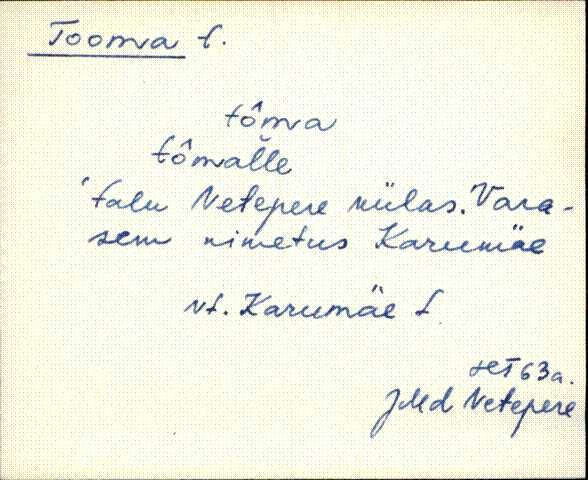 Toomva t.
tômva
tômvălle
'talu Vetepere külas. Vara-
sem nimetus Karumäe
vt. Karumäe t
63a.
JMd Vetepere